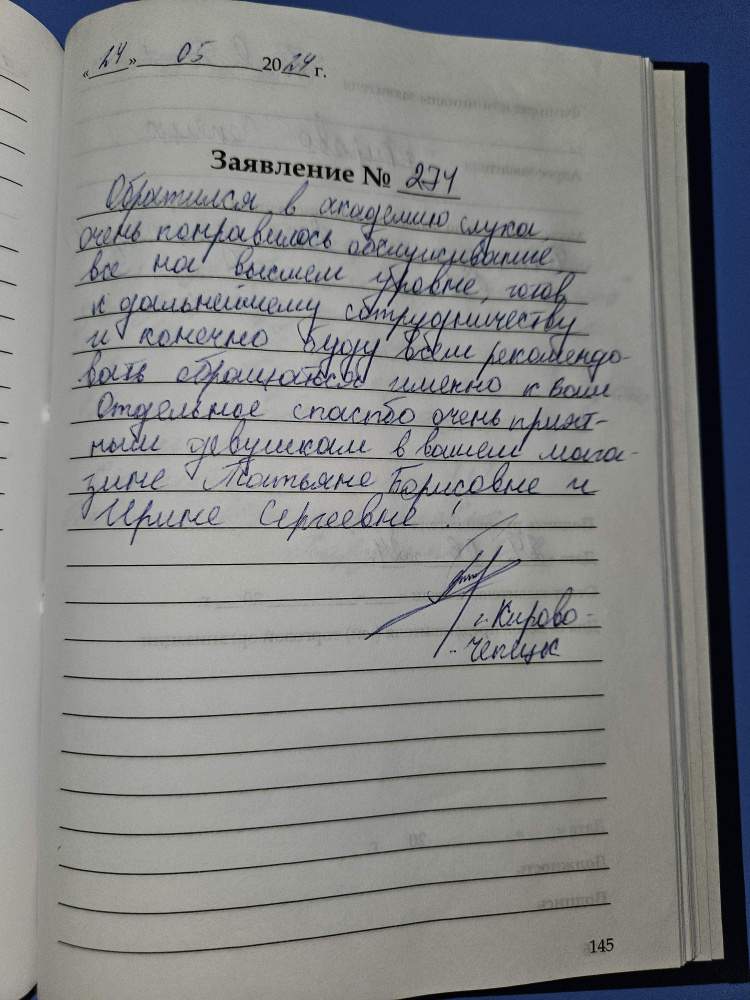 «24» 05 2024 г.
Заявление № 274
Обратился в академию слуха
очень понравилось обслуживание,
все на высшем уровне, готов
к дальнейшему сотрудничеству
и конечно буду всем рекомендо-
вать обращаться именно к вам
Отдельное спасибо очень прият-
ным девушкам в вашем мага-
зине Татьяне Борисовне и
Ирине Сергеевне!
г. Кирово-
Чепецк
145